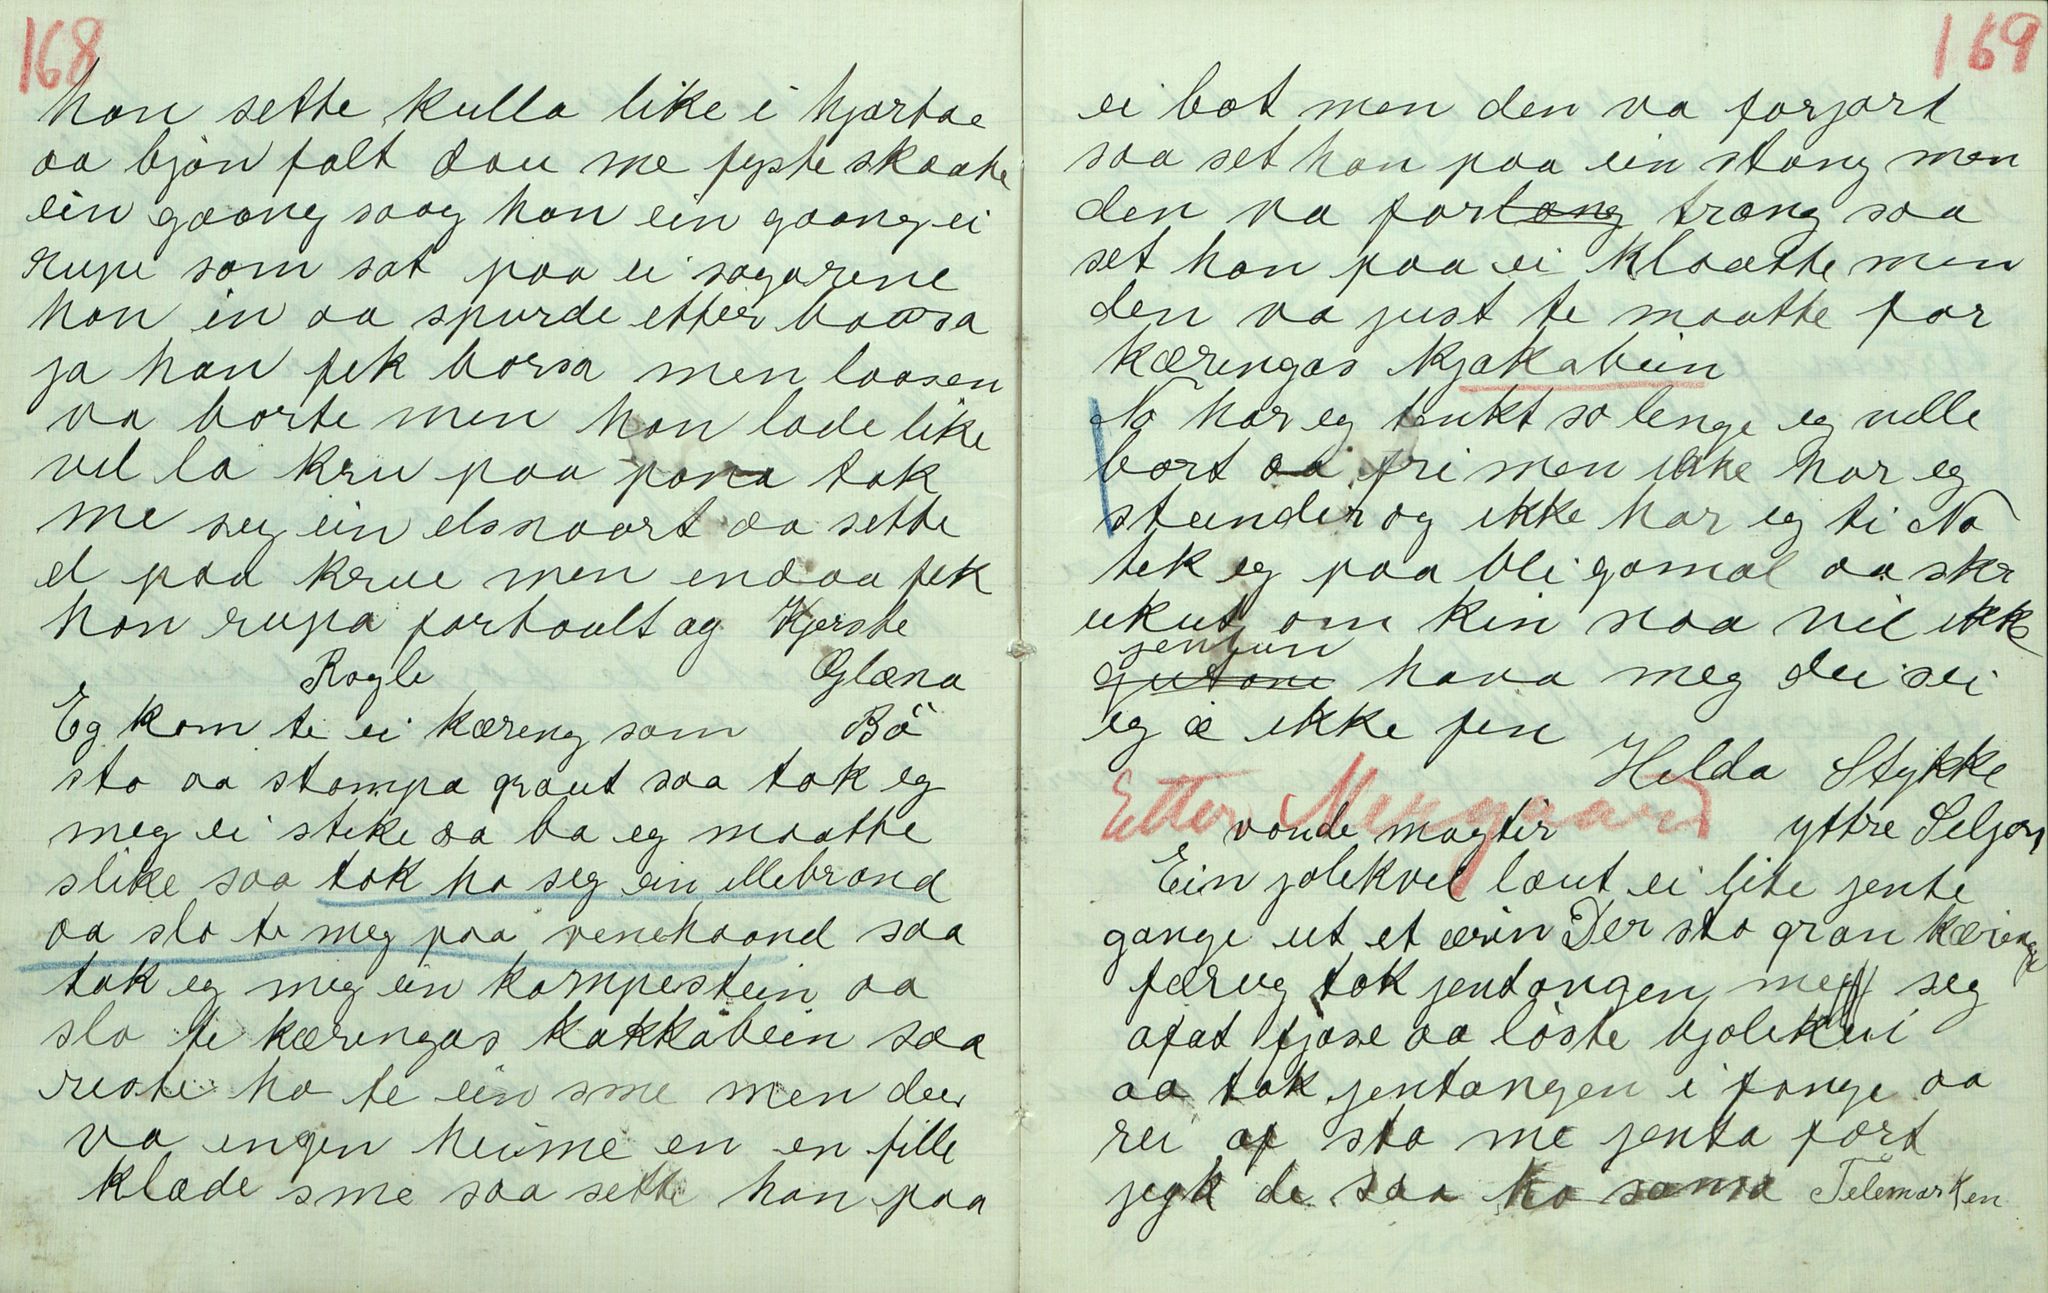 168
han sette kulla like i hjartae
aa bjön falt dau me fyste skaate
ein gaang saag han ein gaang ei
rupe som sat paa ei sagarene
han in aa spurde etter baarsa
ja han fek borsa men laasen
va borte men han lade like
vel la kru paa pana tok
me seg ein elsnaart aa sette
el paa krue men endaa fek
han rupa fortoult ag Kjerste
Rogle Glæna
Eg kom te ei kæreng som Bö
sto aa stompa graut saa tok eg
meg ei steke aa ba eg maatte
slike saa tok ho seg ein ellebrand
aa slo te meg paa venehaand saa
tok eg meg ein kampestein aa
slo te kærengas kakkabein saa
reiste ho te ein sme men der
va engen heime en en fille
klæde sme saa sette han paa
169
ei bot men den va forjort
saa set han paa ein stong men
den va for long trong saa
set han paa ei klaatte men
den va just te maatte for
kærengas kjakabein
No har eg tenkt so lenge eg ville
bort aa fri men ikke har eg
stunder og ikke har eg ti No
tek eg paa bli gamal aa skr
ukut om kin naa vil ikke
jentun
gutane hava meg dei sei
eg æ ikke fin
Helda Stykke
Etter Mengaard
vonde magter yttre Seljor
Ein jolekvel laut ei lite jente
gange ut et ærin Der sto gran kæringe
færug tok jentongen meg seg
afat fjose aa löste bjölekui
aa tok jentongen i fange aa
rei af sto me jenta fort
jegk de saa ho sama Telemarken